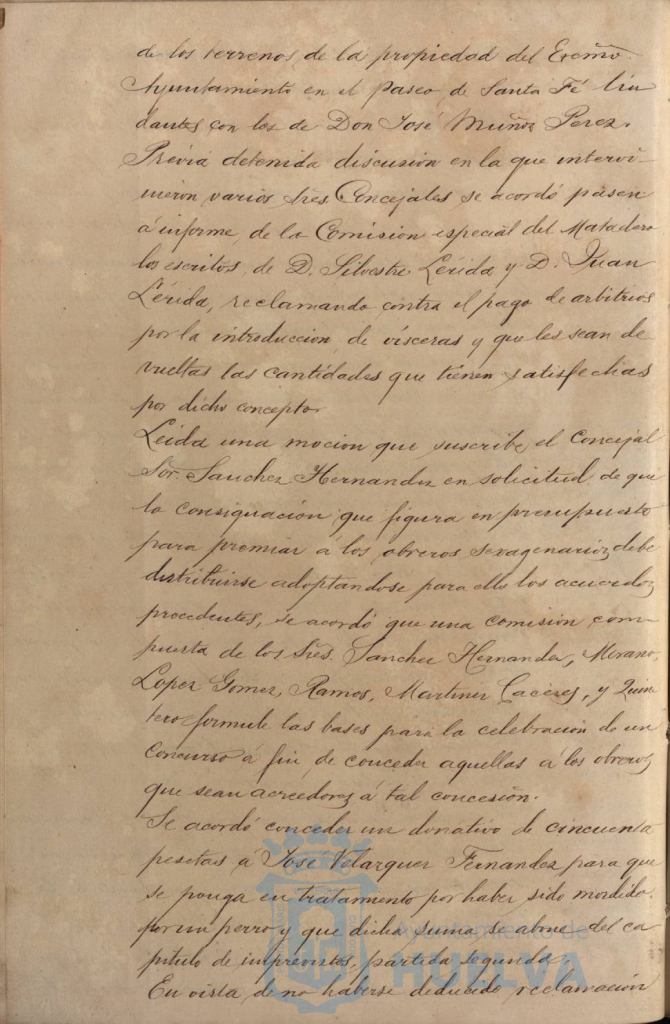 de los terrenos de la propiedad del Excmo.
Ayuntamiento en el paseo de Santa Fé lin
dantes con los de Don José Muñoz Perez.
Previa detenida discusion en la que intervi
nieron varios Sres. Concejales se acordó pasen
á informe de la Comision especial del Matadero
los escritos de D. Silvestre Lérida y D. Juan
Lérida, reclamando contra el pago de arbitrios
por la introduccion de vísceras y que les sean de
vueltas las cantidades que tienen satisfechas
por dicho concepto.
Leida una mocion que suscribe el Concejal
Sor. Sanchez Hernandez en solicitud de que
la consignación que figura en presupuesto
para premiar á los obreros sexagenarios debe
distribuirse adoptandose para ello los acuerdos
procedentes, se acordó que una comisión com
puesta de los Sres. Sanchez Hernandez, Morano,
Lopez Gomez, Ramos, Martinez Caceres, y Quin
tero formule las bases para la celebración de un
concurso á fin de conceder aquellas á los obreros
que sean acreedores á tal concesión.
Se acordó conceder un donativo de cincuenta
pesetas á José Velazquez Fernandez para que
se ponga en tratamiento por haber sido mordido
por un perro y que dicha suma se abone del ca
pitulo de imprevistos, partida segunda.
En vista de no haberse deducido reclamación
Ayuntamiento de
HUELVA